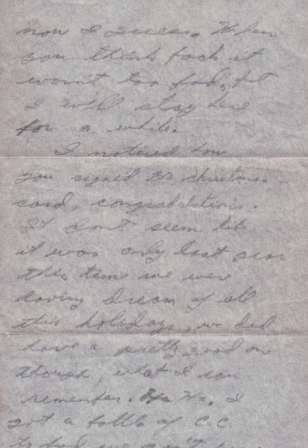 now I guess. When
you think back it
wasn't too bad, but
I will stay here
for a while.
I noticed how
you signed the Christmas
card, congratulations.
It don't seem like
it was only last year
this time we were
having dream of all
this holidays, we did
have a pretty good one
though, what I can
remember. Ha Ha. I
got a bottle of C.C.